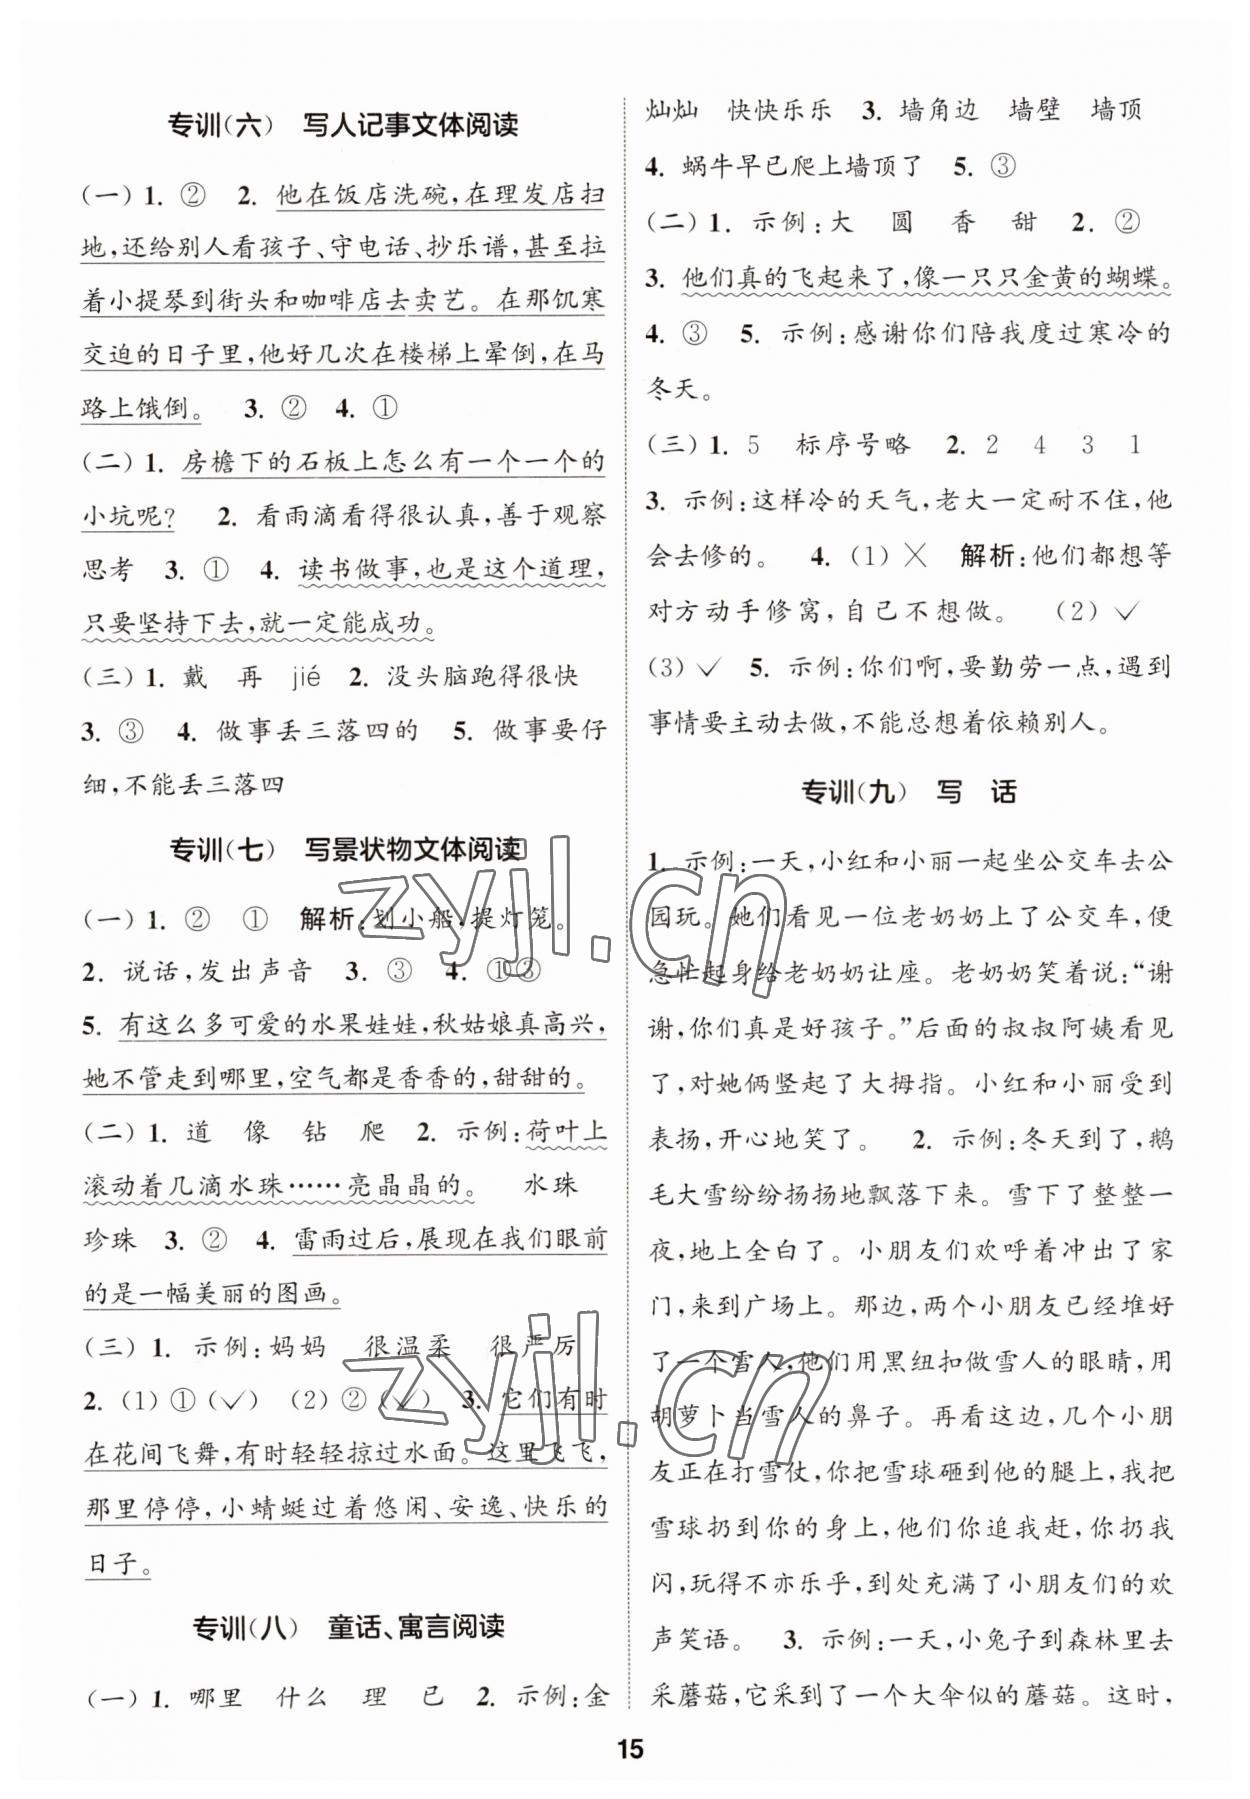 专训(六) 写人记事文体阅读
(一) 1. ② 2. 他在饭店洗碗,在理发店扫
地,还给别人看孩子、守电话、抄乐谱,甚至拉
着小提琴到街头和咖啡店去卖艺。在那饥寒
交迫的日子里,他好几次在楼梯上晕倒,在马
路上饿倒。 3. ② 4. ①
(二) 1. 房檐下的石板上怎么有一个一个的
小坑呢? 2. 看雨滴看得很认真,善于观察
思考 3. ① 4. 读书做事,也是这个道理,
只要坚持下去,就一定能成功。
(三) 1. 戴 再 jié 2. 没头脑跑得很快
3. ③ 4. 做事丢三落四的 5. 做事要仔
细,不能丢三落四
专训(七) 写景状物文体阅读
(一) 1. ② ① 解析:划小船,提灯笼。
2. 说话,发出声音 3. ③ 4. ①③
5. 有这么多可爱的水果娃娃,秋姑娘真高兴,
她不管走到哪里,空气都是香香的,甜甜的。
(二) 1. 道 像 钻 爬 2. 示例:荷叶上
滚动着几滴水珠……亮晶晶的。 水珠
珍珠 3. ② 4. 雷雨过后,展现在我们眼前
的是一幅美丽的图画。
(三) 1. 示例:妈妈 很温柔 很严厉
2. (1) ① (✓) (2) ② (✓) 3. 它们有时
在花间飞舞,有时轻轻掠过水面。这里飞飞,
那里停停,小蜻蜓过着悠闲、安逸、快乐的
日子。
专训(八) 童话、寓言阅读
(一) 1. 哪里 什么 理 已 2. 示例:金
灿灿 快快乐乐 3. 墙角边 墙壁 墙顶
4. 蜗牛早已爬上墙顶了 5. ③
(二) 1. 示例:大 圆 香 甜 2. ②
3. 他们真的飞起来了,像一只只金黄的蝴蝶。
4. ③ 5. 示例:感谢你们陪我度过寒冷的
冬天。
(三) 1. 5 标序号略 2. 2 4 3 1
3. 示例:这样冷的天气,老大一定耐不住,他
会去修的。 4. (1) ✕ 解析:他们都想等
对方动手修窝,自己不想做。 (2) ✓
(3) ✓ 5. 示例:你们啊,要勤劳一点,遇到
事情要主动去做,不能总想着依赖别人。
专训(九) 写 话
1. 示例:一天,小红和小丽一起坐公交车去公
园玩。她们看见一位老奶奶上了公交车,便
急忙起身给老奶奶让座。老奶奶笑着说:“谢
谢,你们真是好孩子。”后面的叔叔阿姨看见
了,对她俩竖起了大拇指。小红和小丽受到
表扬,开心地笑了。 2. 示例:冬天到了,鹅
毛大雪纷纷扬扬地飘落下来。雪下了整整一
夜,地上全白了。小朋友们欢呼着冲出了家
门,来到广场上。那边,两个小朋友已经堆好
了一个雪人,他们用黑纽扣做雪人的眼睛,用
胡萝卜当雪人的鼻子。再看这边,几个小朋
友正在打雪仗,你把雪球砸到他的腿上,我把
雪球扔到你的身上,他们你追我赶,你扔我
闪,玩得不亦乐乎,到处充满了小朋友们的欢
声笑语。 3. 示例:一天,小兔子到森林里去
采蘑菇,它采到了一个大伞似的蘑菇。这时,
15
zyjl.cn
zyjl.cn